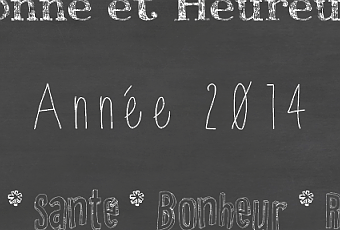 onne et Heureu
Année 2014
* Santé * Bonheur * R